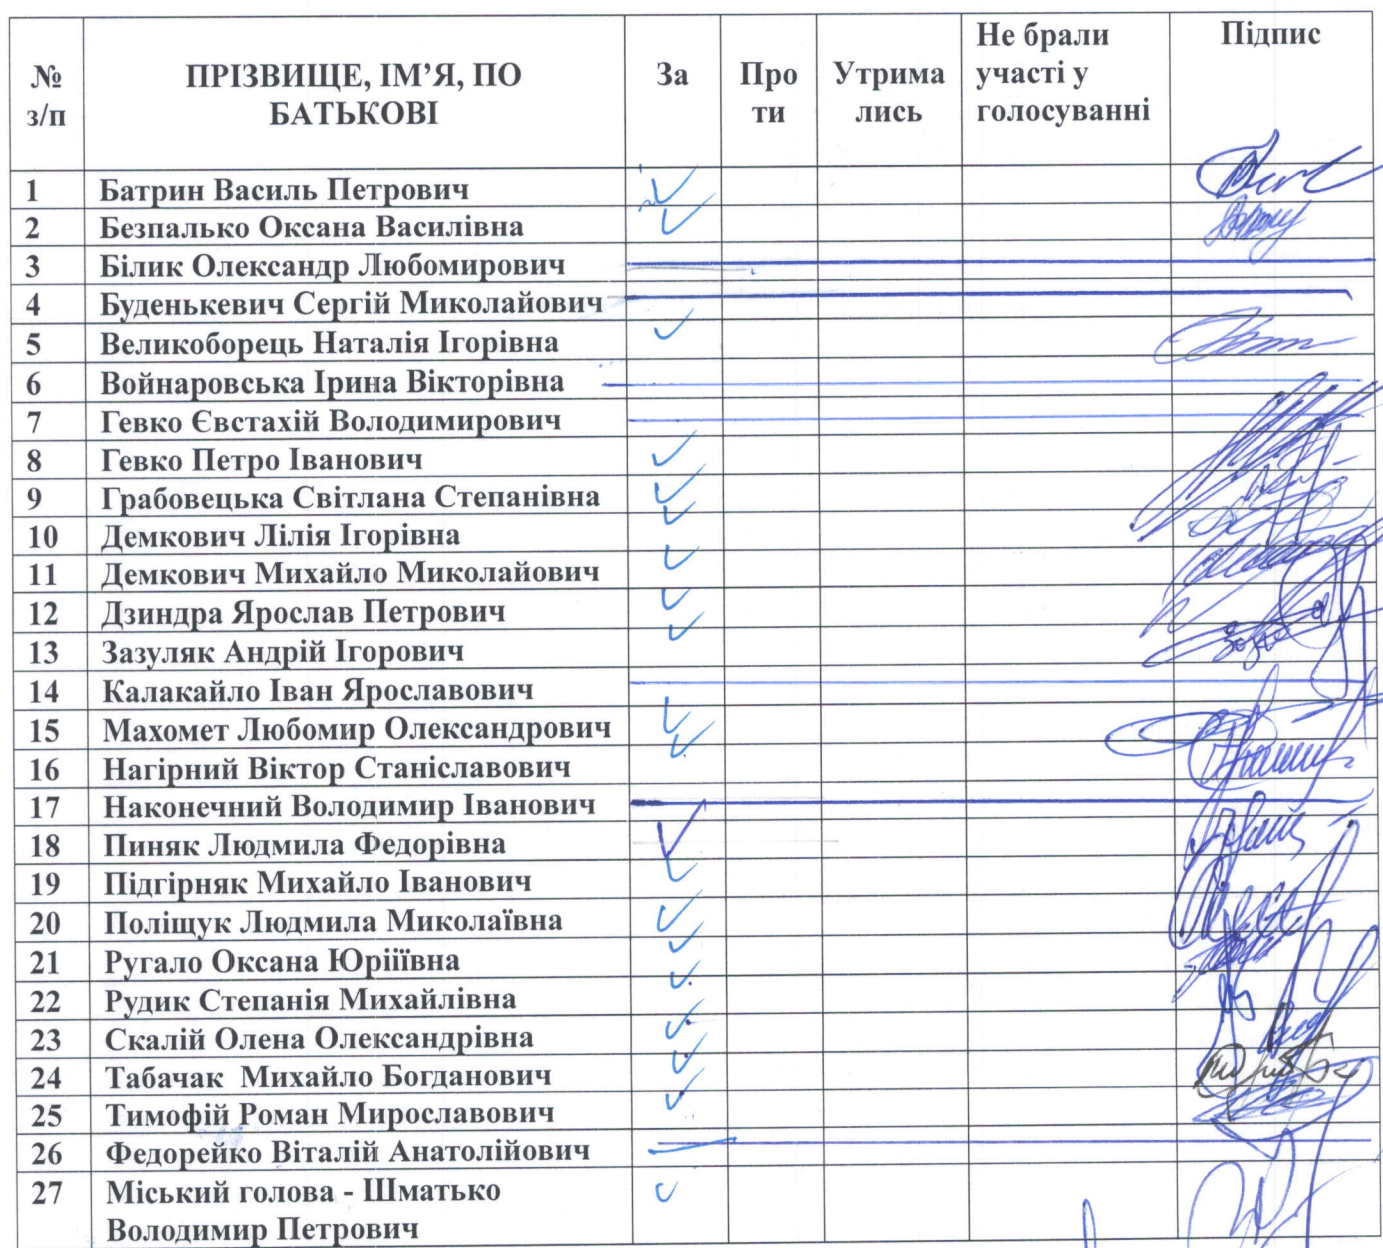 № з/п ПРІЗВИЩЕ, ІМ’Я, ПО БАТЬКОВІ За Проти Утрималсь Не брали участі у голосуванні Підпис
1 Батрин Василь Петрович
2 Безпалько Оксана Василівна
3 Білик Олександр Любомирович
4 Буденькевич Сергій Миколайович
5 Великоборець Наталія Ігорівна
6 Войнаровська Ірина Вікторівна
7 Гевко Євстахій Володимирович
8 Гевко Петро Іванович
9 Грабовецька Світлана Степанівна
10 Демкович Лілія Ігорівна
11 Демкович Михайло Миколайович
12 Дзиндра Ярослав Петрович
13 Зазуляк Андрій Ігорович
14 Калакайло Іван Ярославович
15 Махомет Любомир Олександрович
16 Нагірний Віктор Станіславович
17 Наконечний Володимир Іванович
18 Пиняк Людмила Федорівна
19 Підгірняк Михайло Іванович
20 Поліщук Людмила Миколаївна
21 Ругало Оксана Юріїївна
22 Рудик Степанія Михайлівна
23 Скалій Олена Олександрівна
24 Табачак Михайло Богданович
25 Тимофій Роман Мирославович
26 Федорейко Віталій Анатолійович
27 Міський голова - Шматько
Володимир Петрович